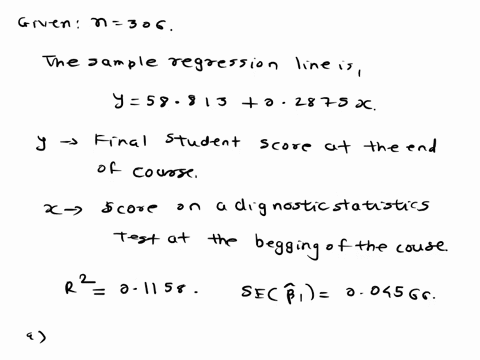 Given: n=306.
The sample regression line is,
y=58.813 +0.2875x.
y → Final student score at the end
of course.
x → score on a dignostic statistics
test at the begging of the couse.
R²=0.1158. SE(β̂₁)= 0.04566.
a)